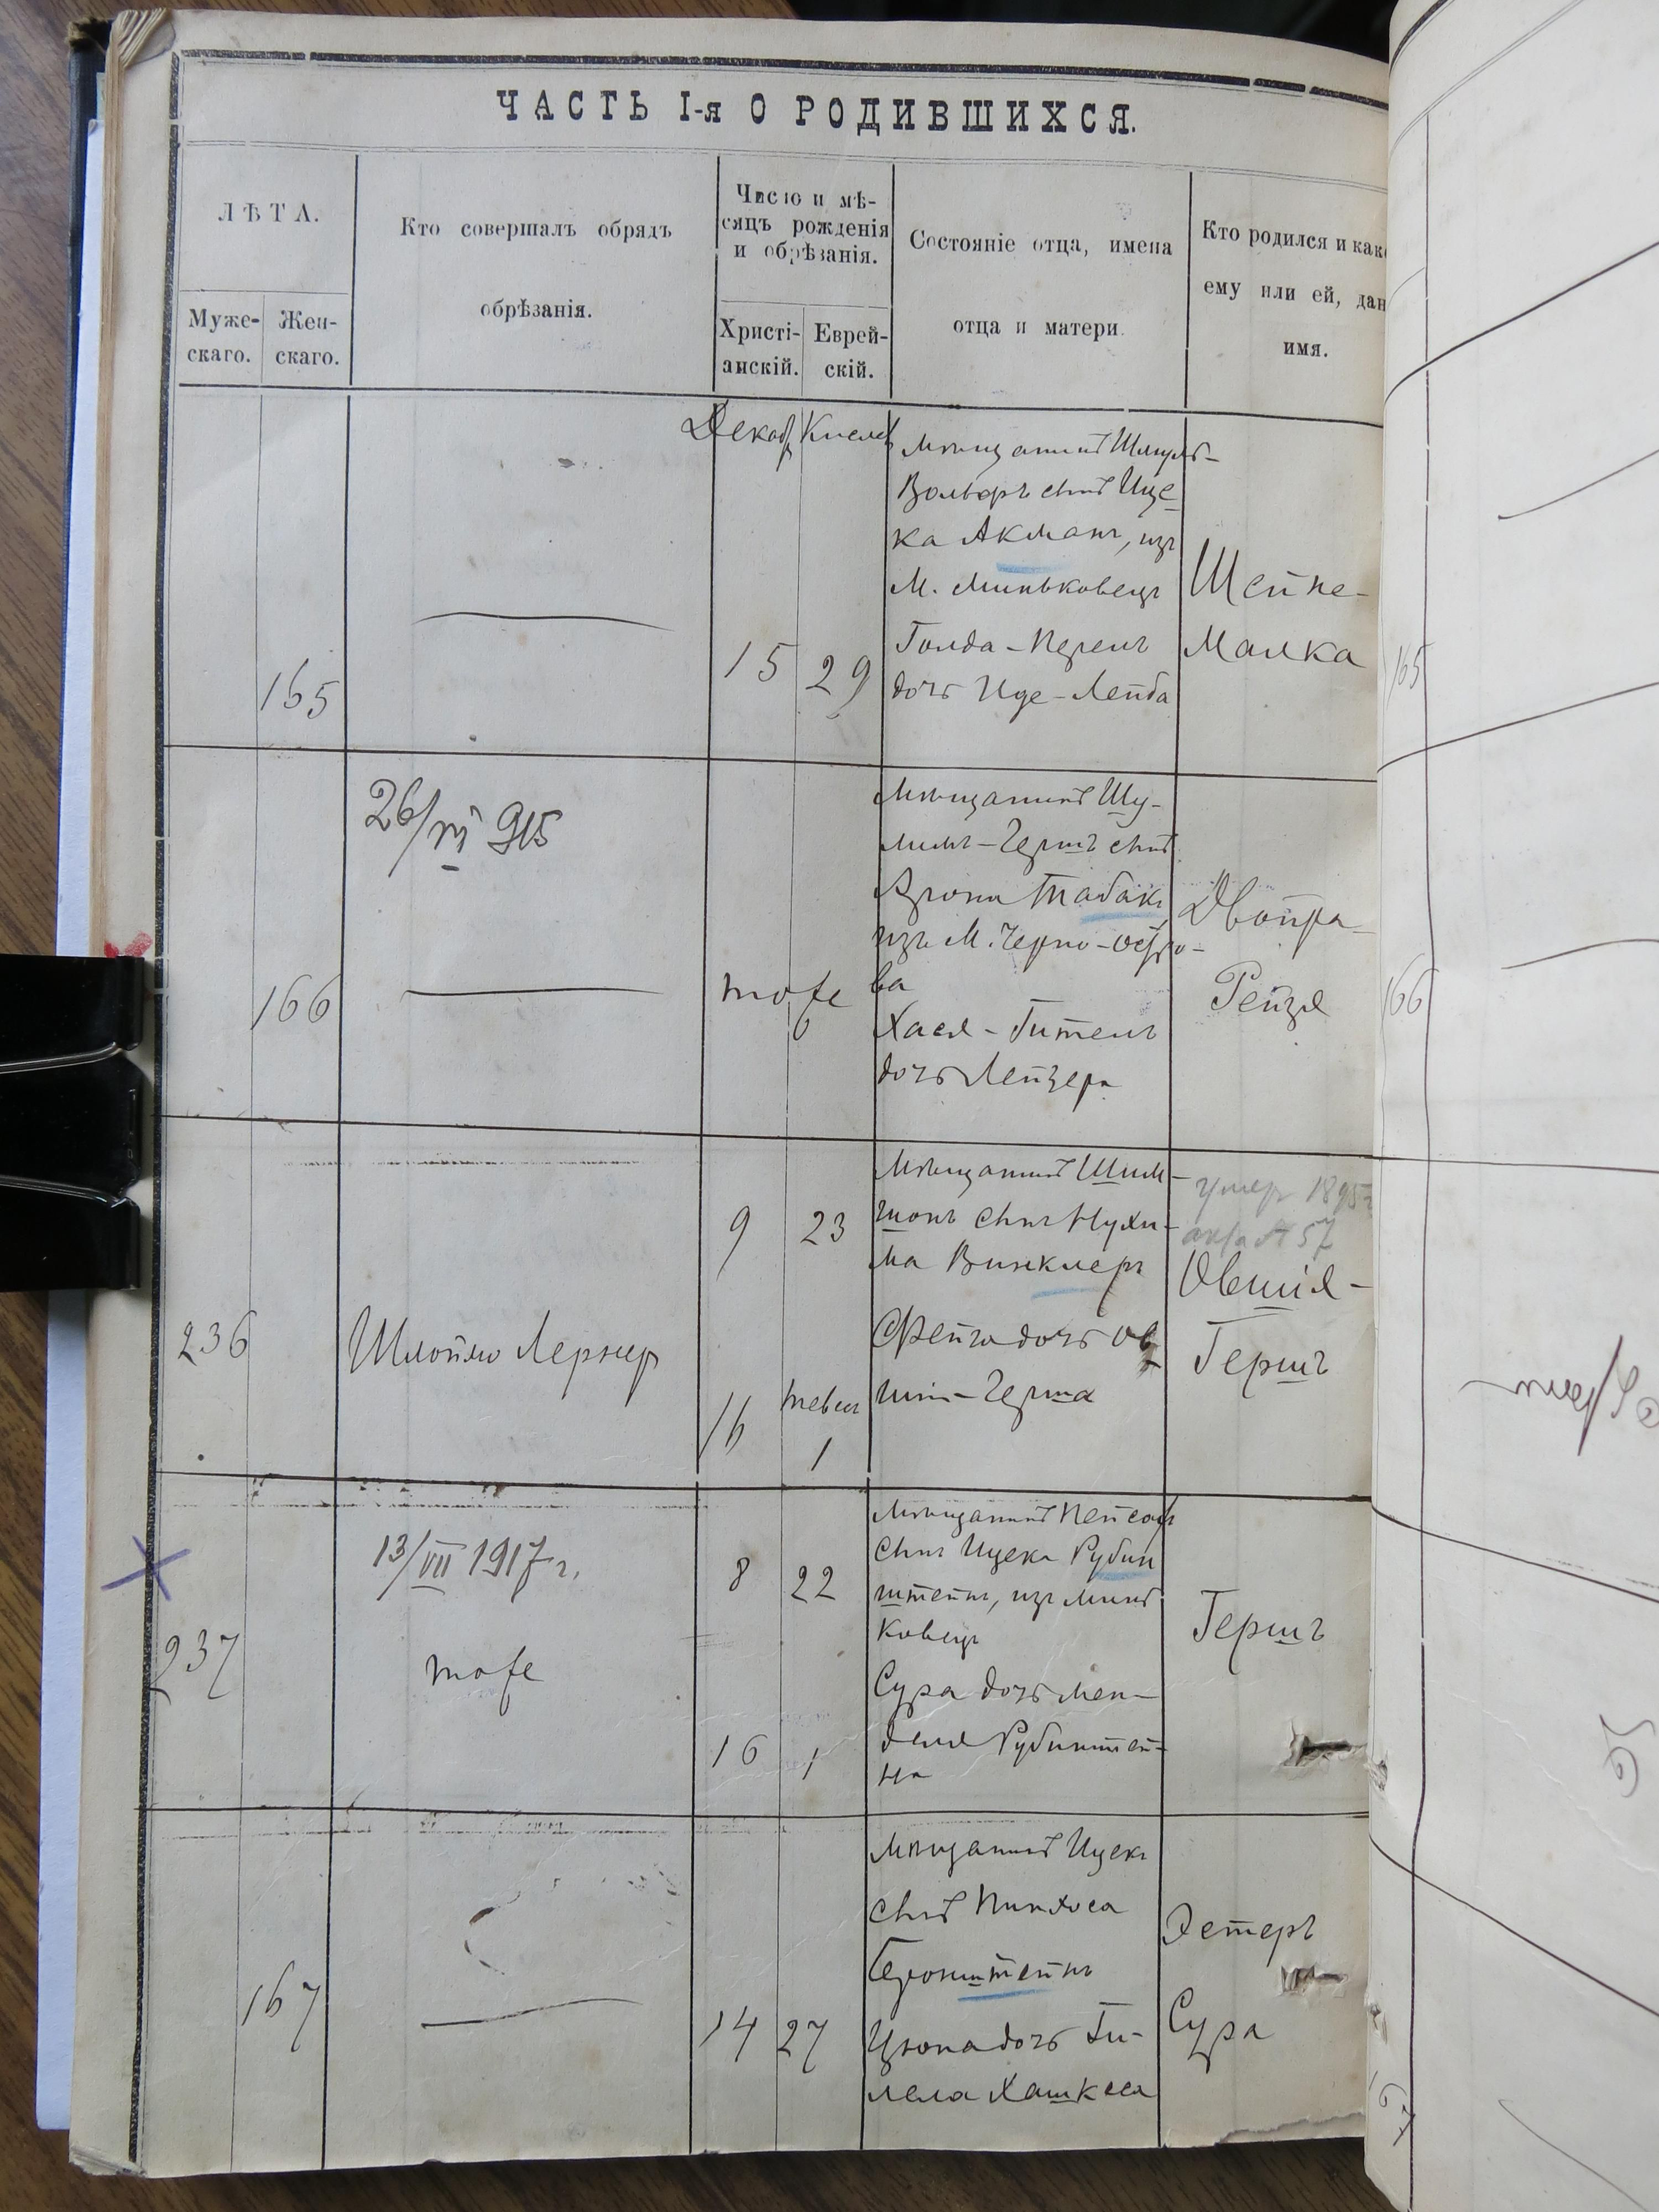 ЧАСТЬ I-я О РОДИВШИХСЯ.
ЛѢТА.
Муже-
скаго.
Жен-
скаго.
Кто совершалъ обрядъ
обрѣзанія.
Число и мѣ-
сяцъ рожденія
и обрѣзанія.
Христі-
анскій.
Еврей-
скій.
Состояніе отца, имена
отца и матери.
Кто родился и как
ему или ей, дан
имя.
165
Декаб Кислев
15 29
Мѣщанинъ Шмуль-
Вольфъ сынъ Ице-
ка Акманъ, изъ
М. Миньковецъ
Голда-Перель
дочь Иде-Лейба
Шейне-
Малка
165
166
26/VI 915
тоже
Мѣщанинъ Шу-
лимъ-Гершъ сынъ
Арона Табакъ
изъ М. Черно-Остро-
ва
Хася-Гитель
дочь Лейзера
Двойра-
Рейзя
166
236
Шлоймо Лернер
9 23
16 Тевет
1
Мѣщанинъ Шим-
шонъ сынъ Нухи-
ма Винклеръ
Фейга дочь Ов
шія-Герша
умер 1895г
акта № 57
Овшія-
Гершъ
237
13/VII 1917 г.
тоже
8 22
16 1
Мѣщанинъ Пейсах
сынъ Ицека Рубин
штейнъ, изъ Минь
ковецъ
Сура дочь Мен-
деля Рубинштей-
на
Гершъ
167
14 27
Мѣщанинъ Ицекъ
сынъ Пинхоса
Бронштейнъ
Цюпа дочь Ги-
лела
Эстеръ
Сура
167